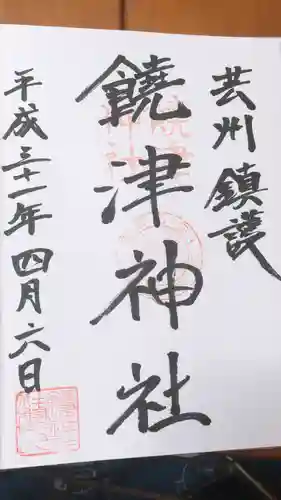 芸州鎮護
饒津神社
平成三十一年四月六日